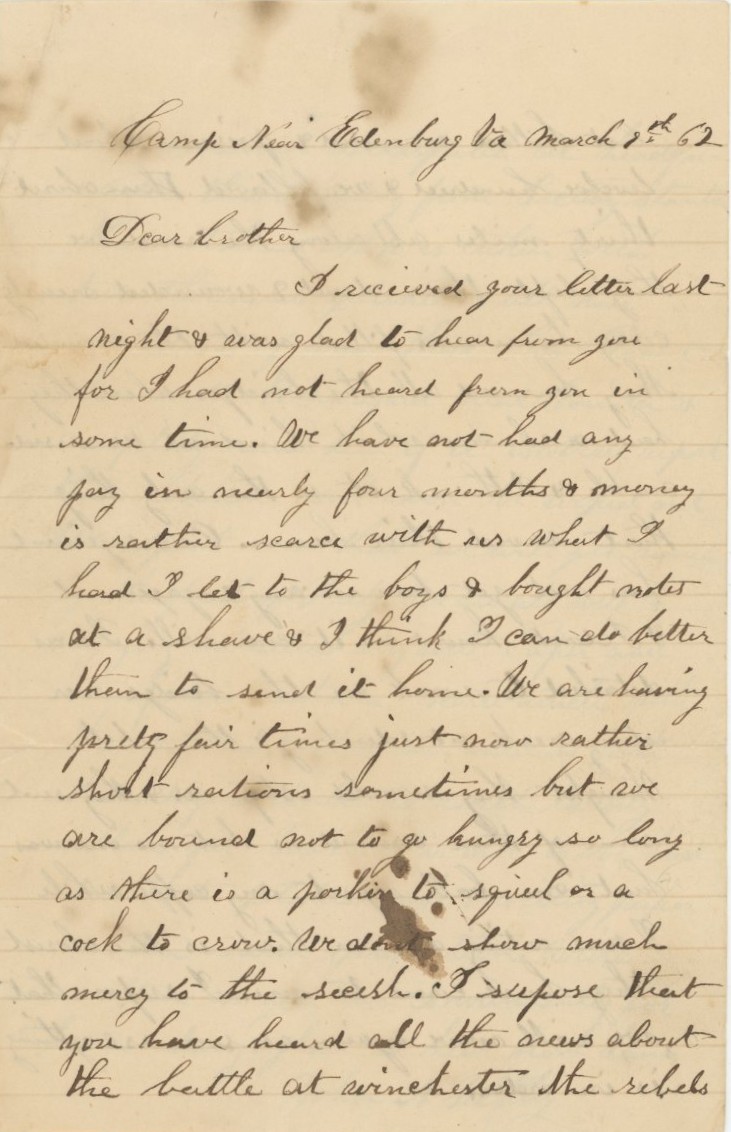 Camp Near Edenburg Va March 9th 62
Dear brother
I recieved your letter last
night & was glad to hear from you
for I had not heard from you in
some time. We have not had any
pay in nearly four months & money
is rather scarce with us what I
had I let to the boys & bought notes
at a shave & I think I can do better
than to send it home. We are having
prety fair times just now rather
short rations sometimes but we
are bound not to go hungry so long
as there is a porkin to squeel or a
cock to crow. We dont show much
mercy to the secesh. I supose that
you have heard all the news about
the battle at winchester the rebels